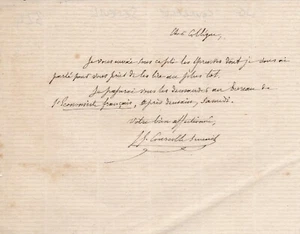 Cher Collègue,
Je vous envoie sous ce pli les épreuves dont je vous ai
parlé pour vous prier de les lire au plus tôt.
Je passerai vous les demander au bureau de
l'Economiste français, après demain, Samedi.
Votre bien affectionné,
Courcelle Seneuil